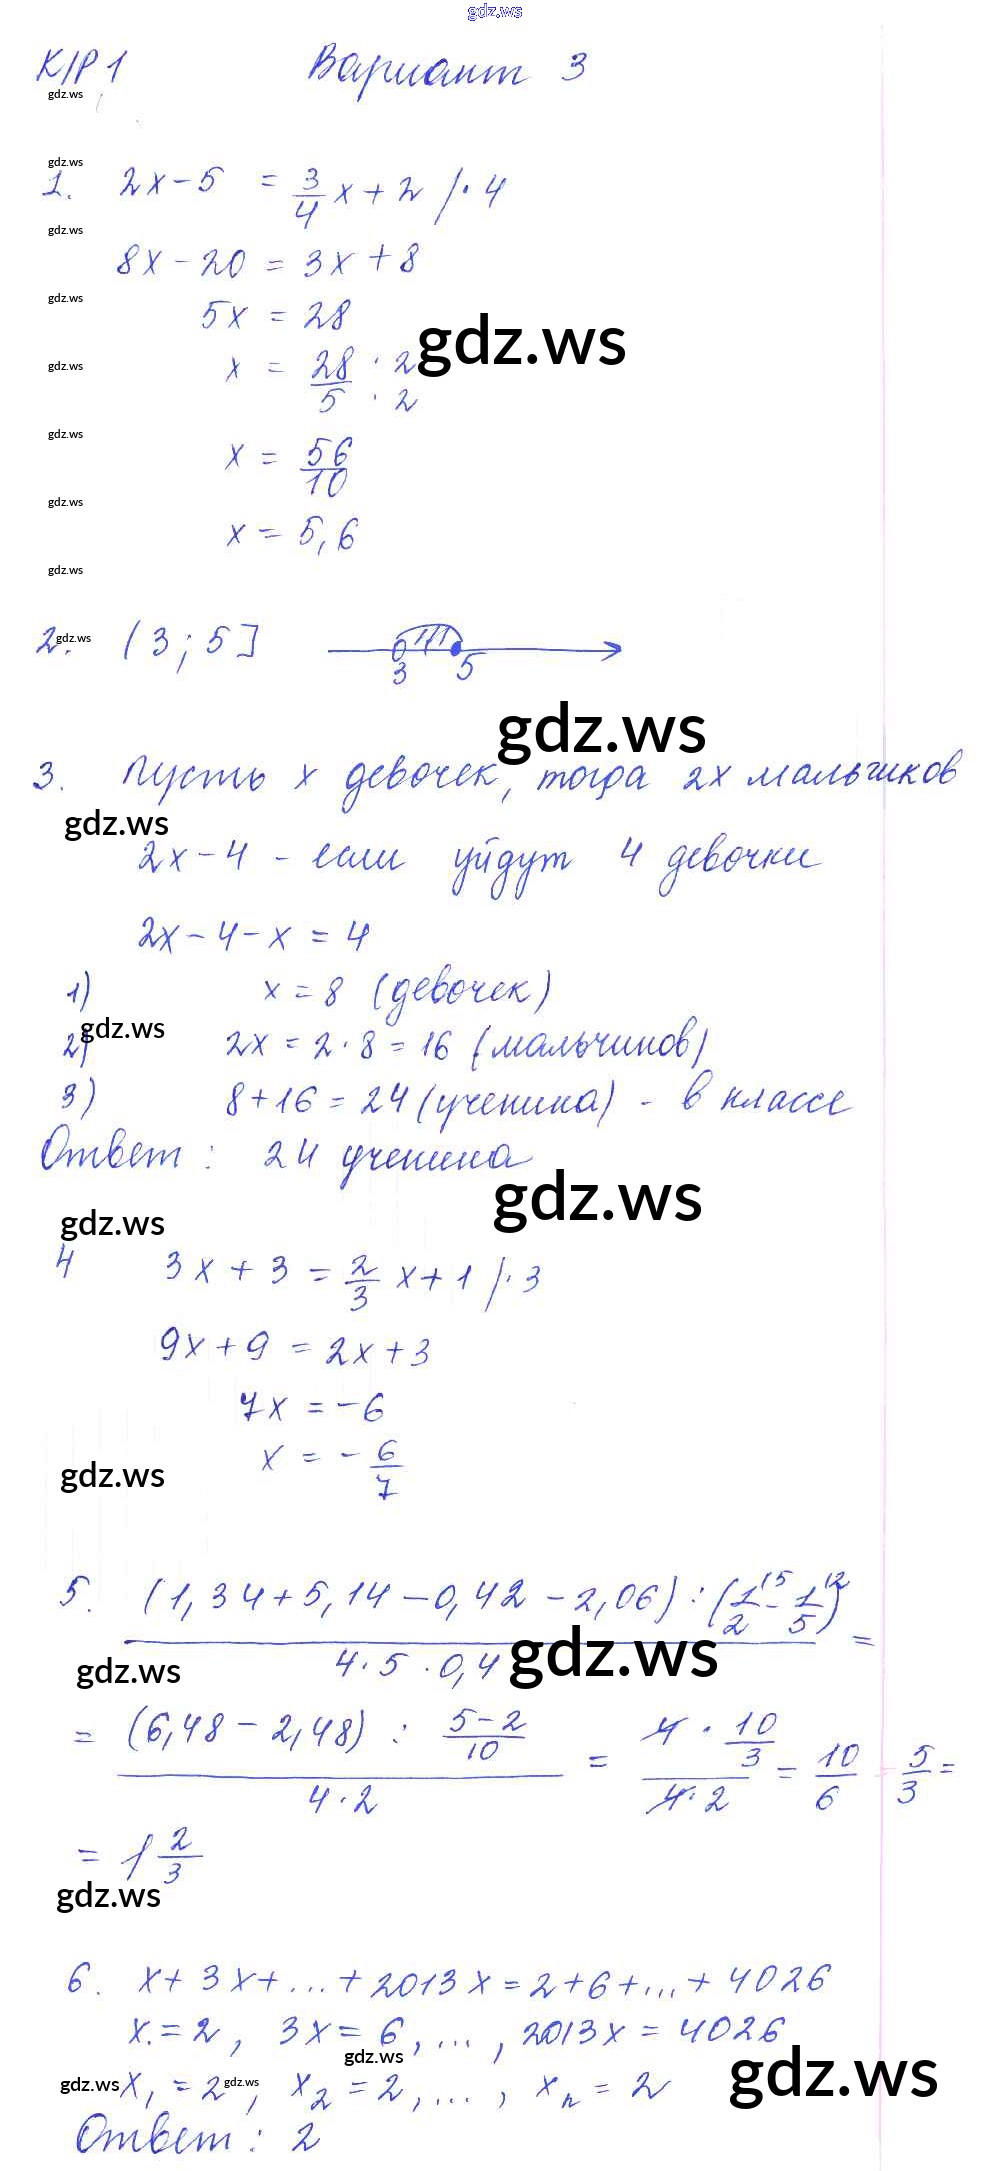 gdz.ws
К/Р 1 Вариант 3
gdz.ws
gdz.ws
1. 2x - 5 = 3/4 x + 2 /· 4
gdz.ws
8x - 20 = 3x + 8
gdz.ws
5x = 28
gdz.ws
gdz.ws
x = 28 · 2 / 5 · 2
gdz.ws
x = 56/10
gdz.ws
x = 5,6
gdz.ws
2. (3; 5] 3 5
gdz.ws
gdz.ws
3. Пусть x девочек, тогда 2x мальчиков
gdz.ws
2x - 4 - если уйдут 4 девочки
2x - 4 - x = 4
1) x = 8 (девочек)
gdz.ws
2) 2x = 2 · 8 = 16 (мальчиков)
3) 8 + 16 = 24 (ученика) - в классе
Ответ: 24 ученика
gdz.ws
gdz.ws
4 3x + 3 = 2/3 x + 1 /· 3
9x + 9 = 2x + 3
7x = -6
x = - 6/7
gdz.ws
5. (1,34 + 5,14 - 0,42 - 2,06) : (1/2 \5 - 1/5 \2) / 4 · 5 · 0,4 =
gdz.ws
gdz.ws
= (6,48 - 2,48) : 5-2/10 / 4 · 2 = 4 · 10/3 / 4 · 2 = 10/6 = 5/3 =
= 1 2/3
gdz.ws
6. x + 3x + ... + 2013x = 2 + 6 + ... + 4026
x = 2, 3x = 6, ..., 2013x = 4026
gdz.ws
gdz.ws
gdz.ws
gdz.ws
x₁ = 2, x₂ = 2, ..., xₙ = 2
Ответ: 2